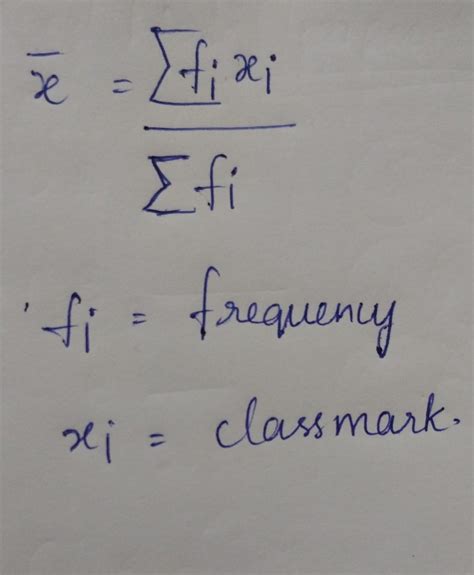 x̄ = ∑fᵢ xᵢ
∑ fᵢ
fᵢ = frequency
xᵢ = classmark.